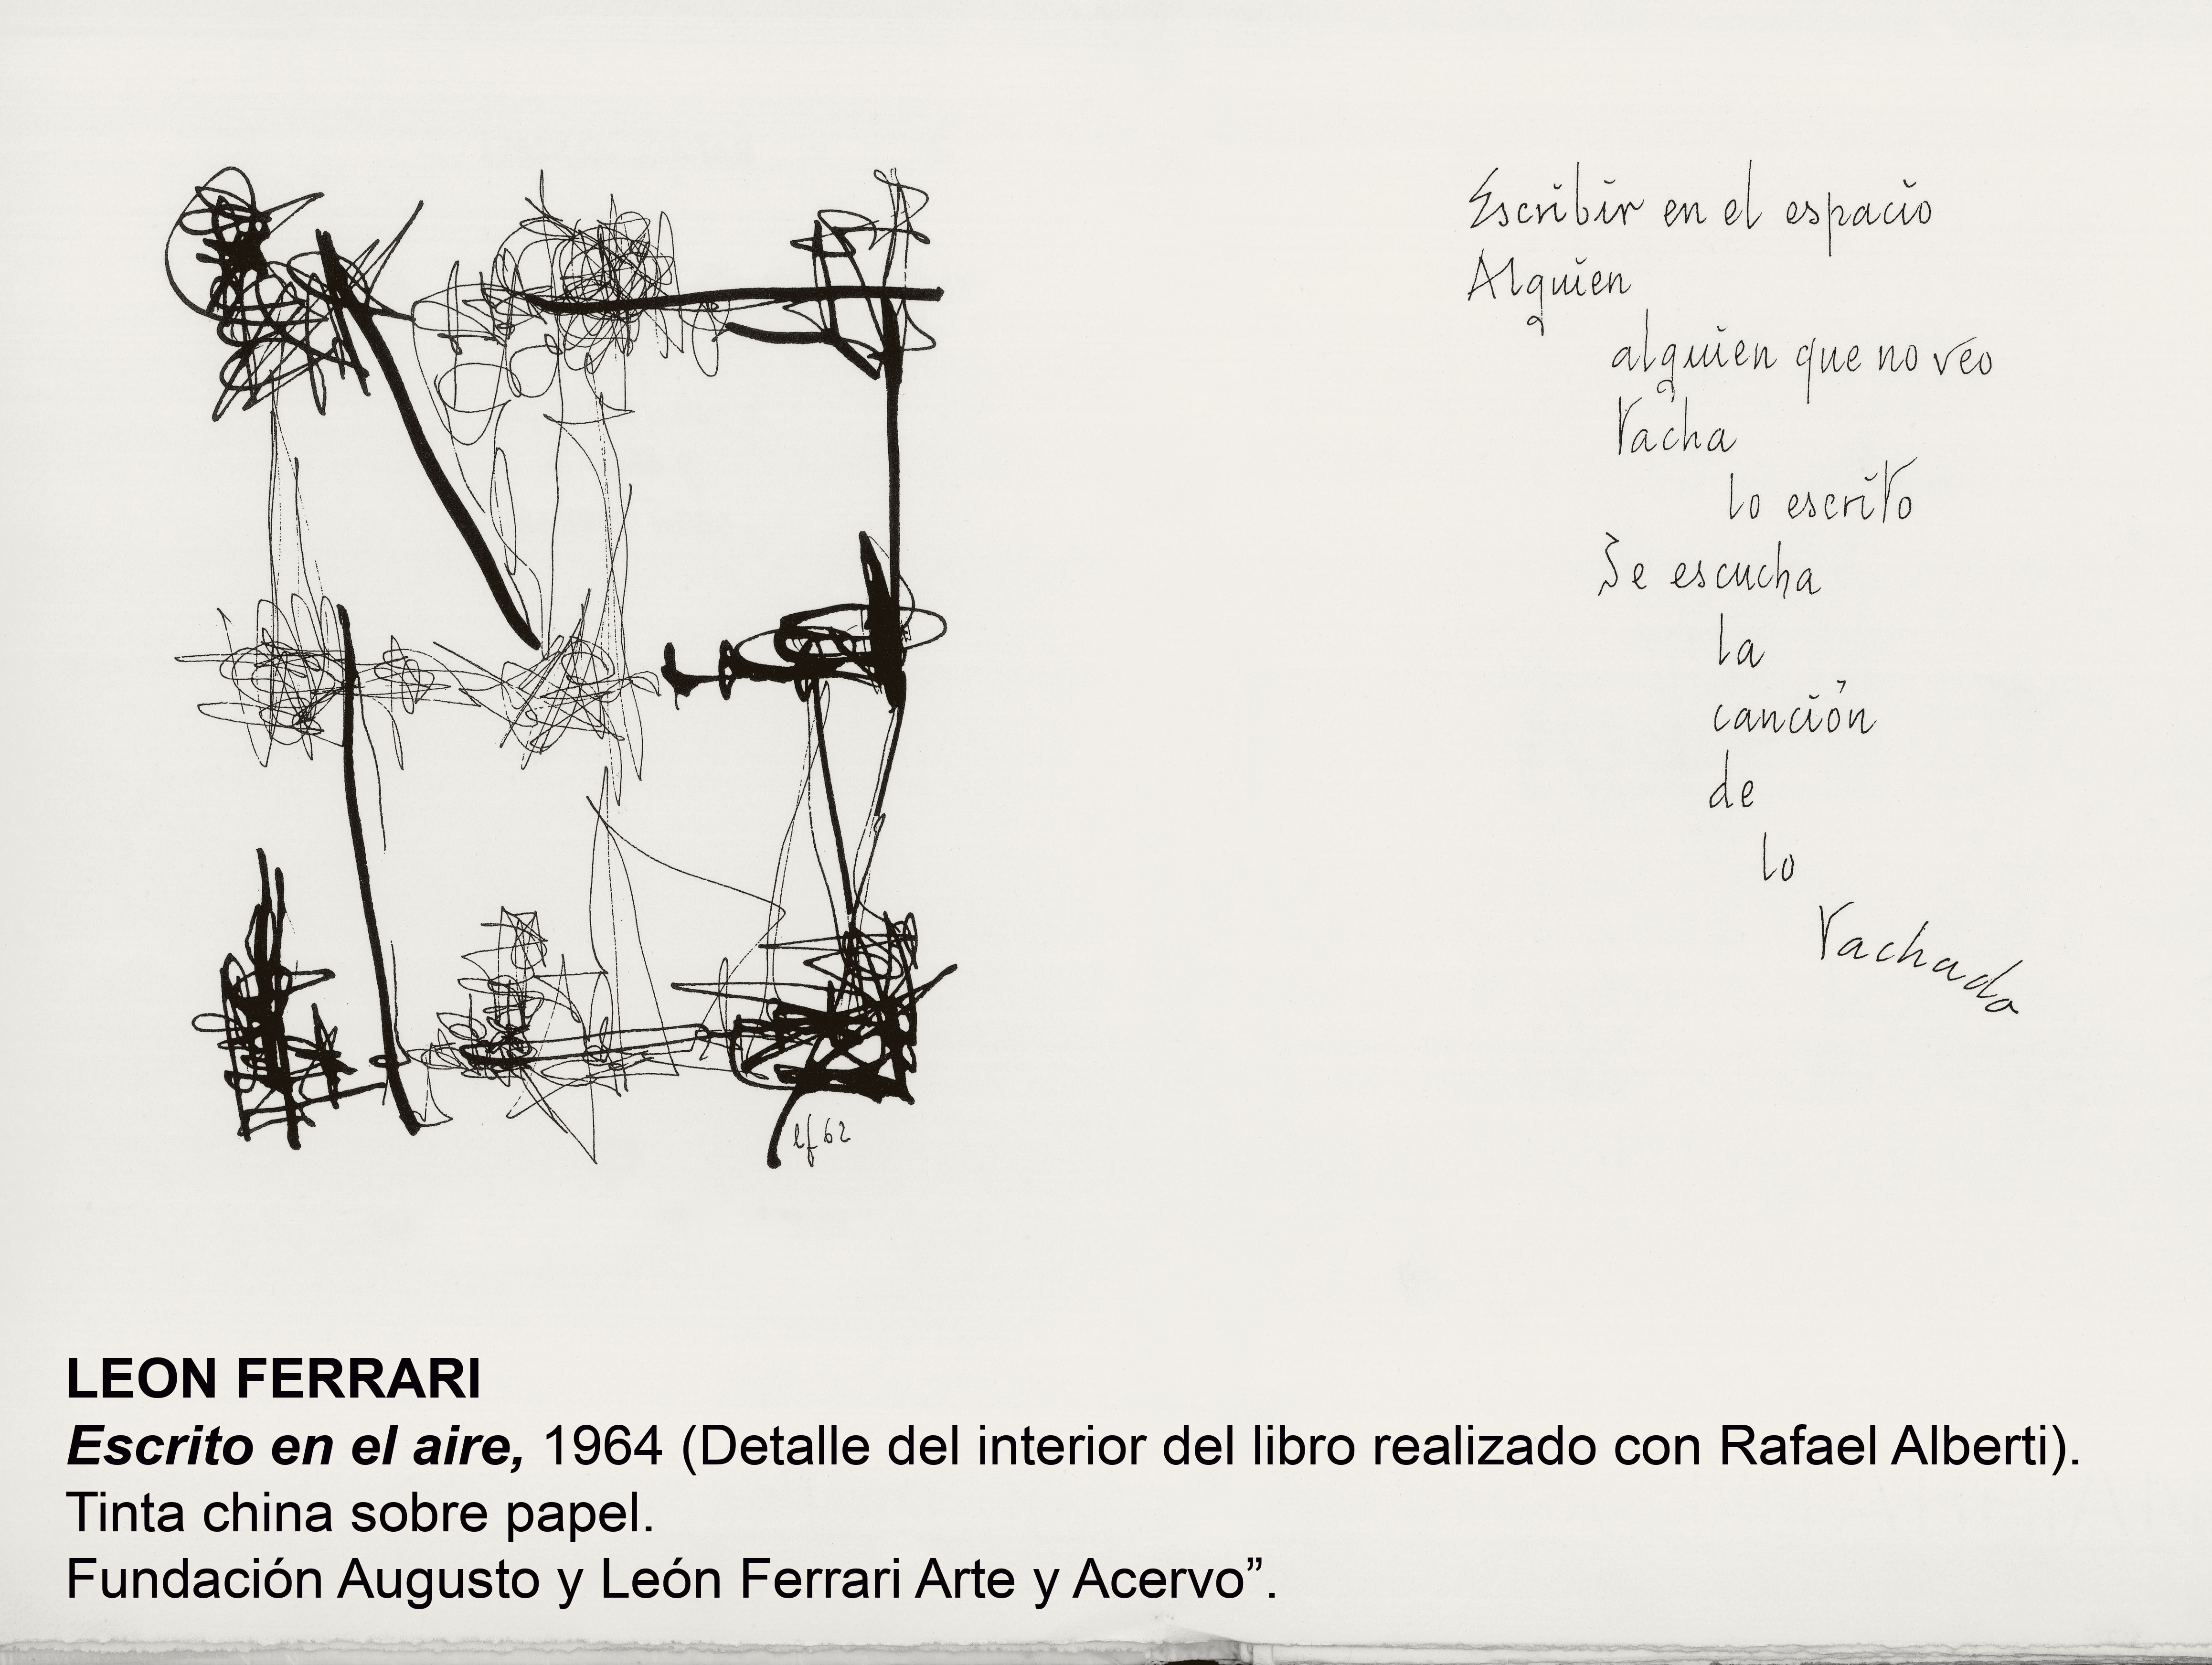 Escribir en el espacio
Alguien
alguien que no veo
tacha
lo escrito
Se escucha
la
canción
de
lo
tachado
lf 62
LEON FERRARI
Escrito en el aire, 1964 (Detalle del interior del libro realizado con Rafael Alberti).
Tinta china sobre papel.
Fundación Augusto y León Ferrari Arte y Acervo”.